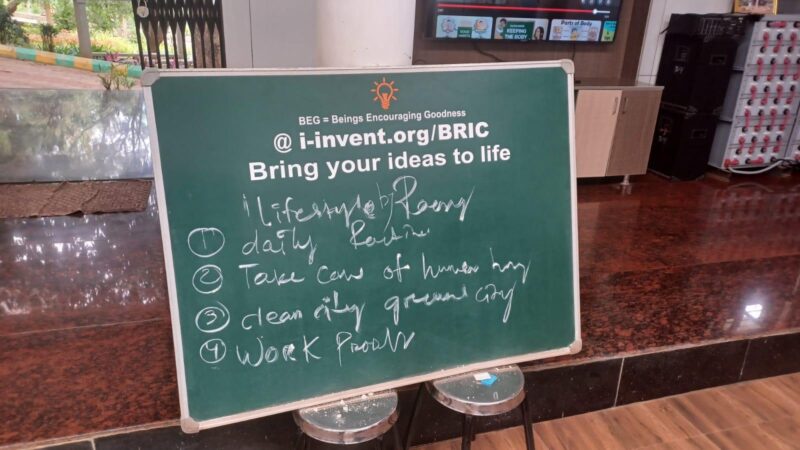 KEEPING THE BODY
Parts of Body
BEG = Beings Encouraging Goodness
@ i-invent.org/BRIC
Bring your ideas to life
Lifestyle by
1 daily Routine
2 Take care of human
3 clean city green city
4 WORK